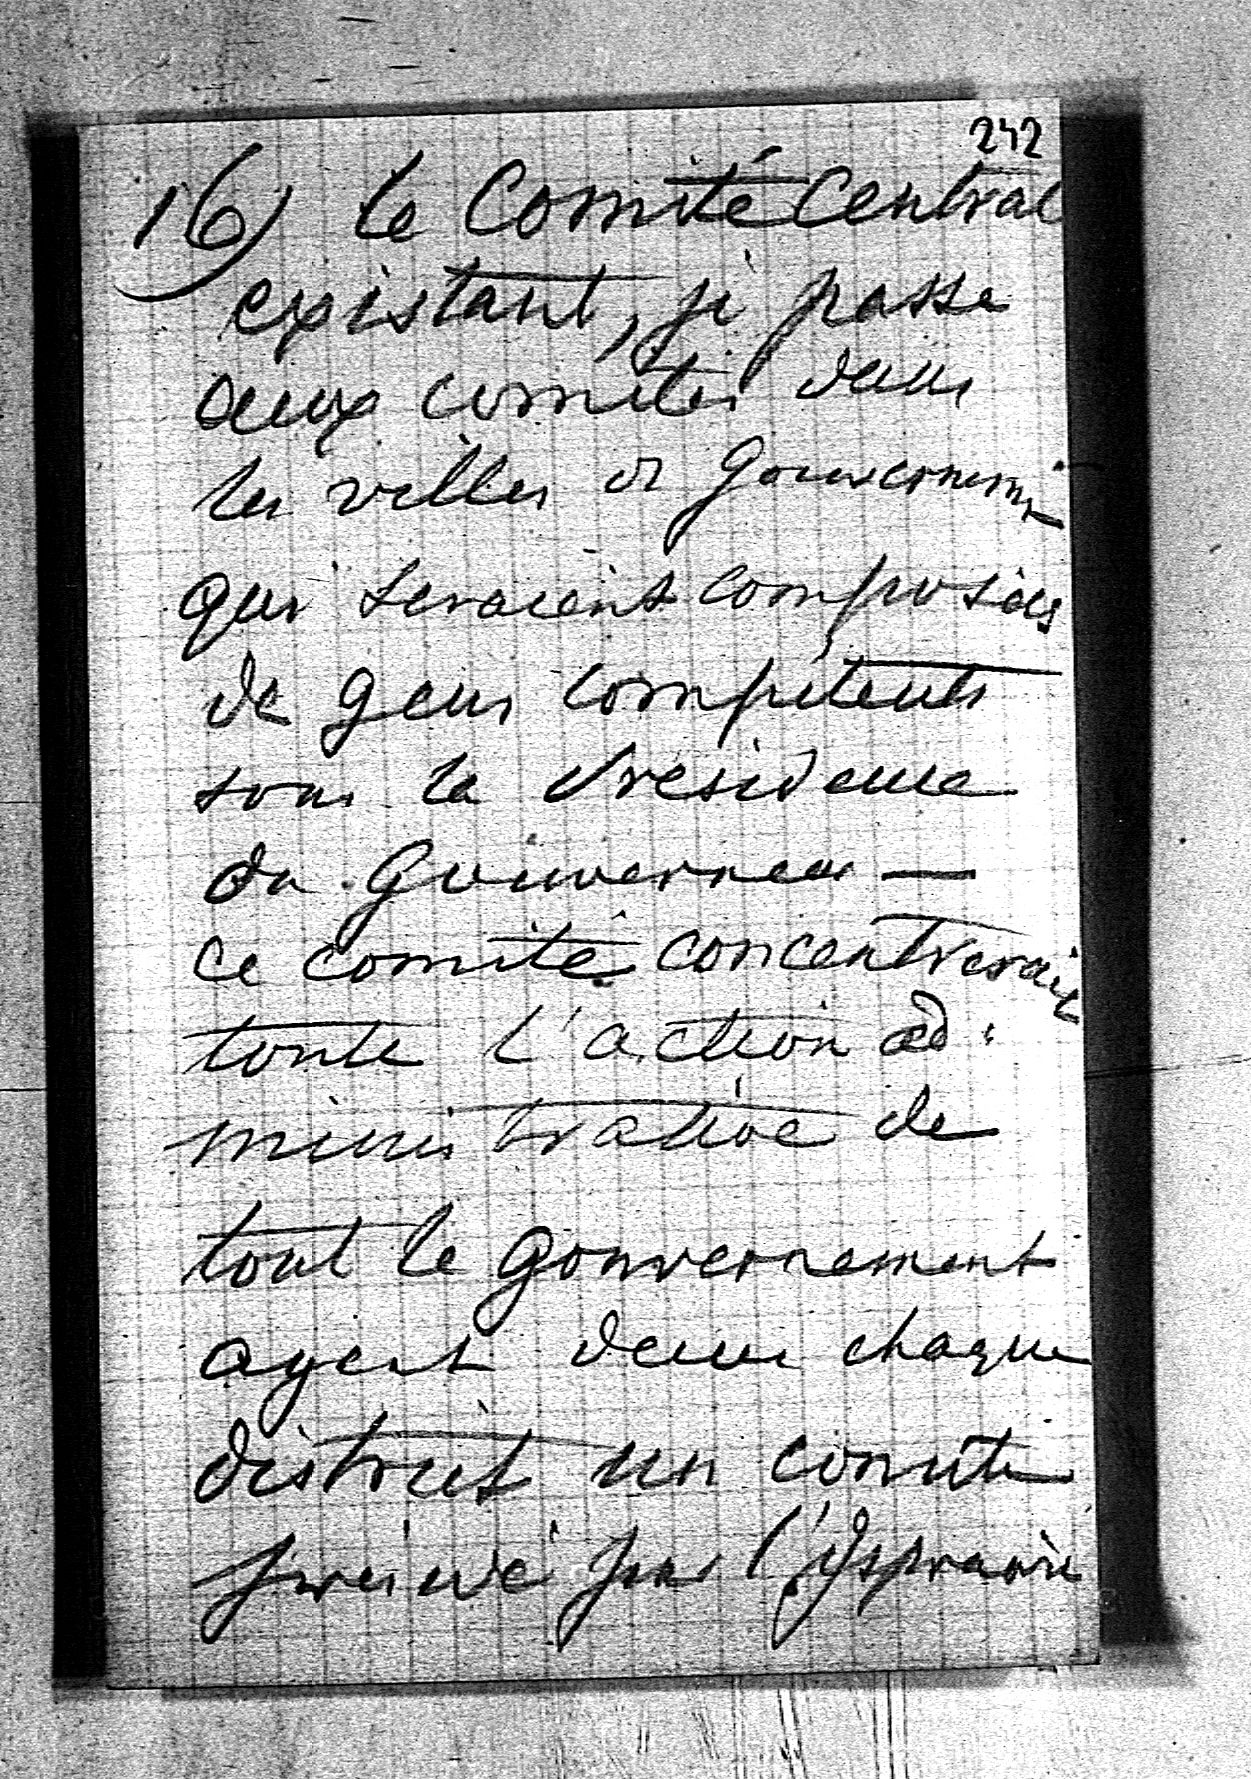 242
16) le Comité Central
existant, je passe
aux comités dans
les villes de Gouvernement
qui seraient composées
de gens compétents
sous la Présidence
du Gouverneur —
ce comité concentrerait
toute l'action ad-
ministrative de
tout le gouvernement
ayant dans chaque
district un comité
présidé par l'Ispravnik